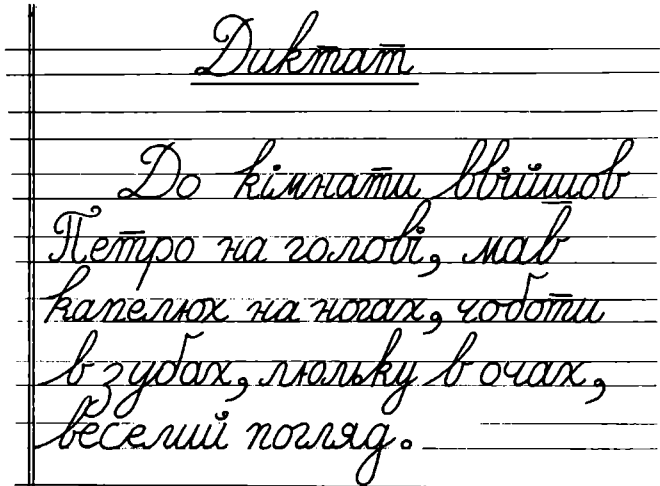 Диктат
До кімнати ввійшов
Петро на голові, мав
капелюх на ногах, чоботи
в зубах, люльку в очах,
веселий погляд.